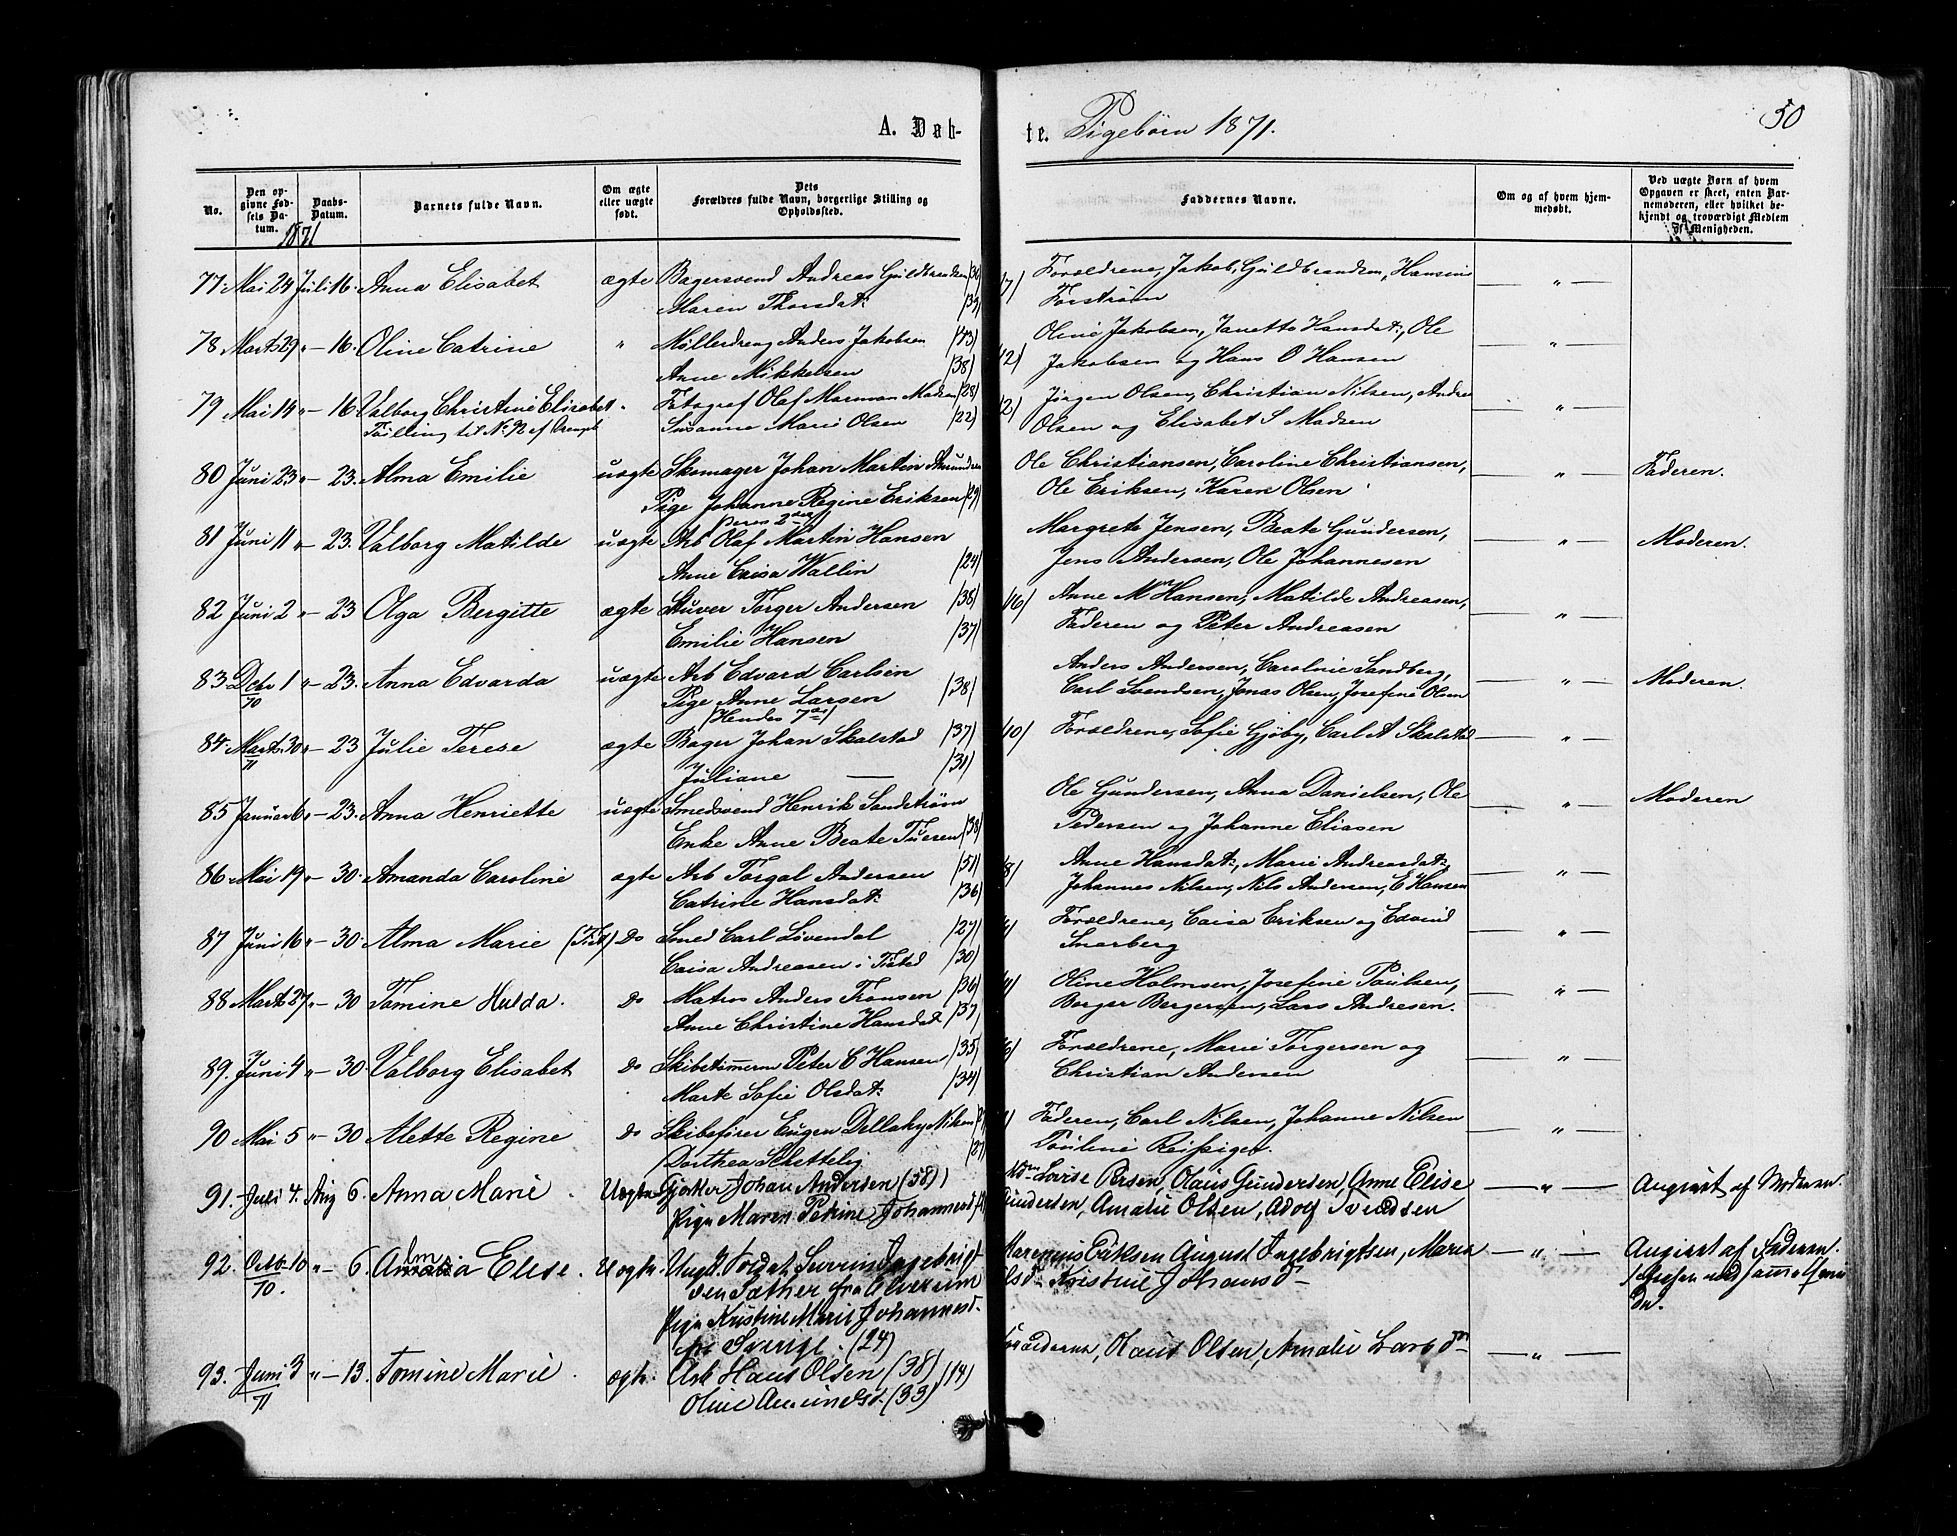 A. Døb-
te. Pigebørn 1871.
50
No.
Den op-
givne Fød-
sels Da-
tum.
1871
Daabs-
Datum.
Barnets fulde Navn.
Om ægte
eller uægte
født.
Dets
Forældres fulde Navn, borgerlige Stilling og
Opholdssted.
Faddernes Navne.
Om og af hvem hjem-
medøbt.
Ved uægte Børn af hvem
Opgaven er skeet, enten Bar-
nemoderen, eller hvilket be-
kjendt og troværdigt Medlem
af Menigheden.
77 Mai 24 Juli 16. Anna Elisabet ægte Bagersvend Andreas Guldbrandsen Forældrene, Jakob Guldbrandsen, Hansine — " —
Maren Thorsdat: Forstrøm
78 Marts 29 " — 16. Oline Catrine " Møllerdreng Anders Jakobsen /43/ Oline Jakobsen, Janette Hansdat:, Ole — " —
Anne Mikkelsen /38/ Jakobsen og Hans O Hansen
79 Mai 14 " — 16 Valborg Christine Elisabet " Fotograf Olaf Madsen /28/ Jørgen Olsen, Christian Nilsen, Andre — " —
Tvilling til No 92 af Drenge Susanne Marie Olsen /22/ Olsen og Elisabet S Madsen
80 Juni 23 " — 23. Alma Emilie uægte Skomager Johan Martin Amundsen Ole Christiansen, Caroline Christiansen, — " — Faderen.
Pige Johanne Regine Eriksen /29/ Ole Eriksen, Karen Olsen
/Deres 2det/
81 Juni 11 " — 23. Valborg Matilde uægte Arb Olaf Martin Hansen Margrete Jensen, Beate Gundersen, — " — Moderen.
Anne Caisa Wallin /24/ Jens Andersen, Ole Johannesen
82 Juni 2 " — 23 Olga Bergitte ægte Stuver Torger Andersen /38/ /16/ Anne M Hansen, Matilde Andreasen, — " —
Emilie Hansen /37/ Faderen og Peter Andreasen
83 Dcbr 1 " — 23. Anna Edvarda uægte Arb Edvard Carlsen Anders Andersen, Caroline Sandberg, — " — Moderen.
70 Pige Anne Larsen /38/ Carl Svendsen, Jonas Olsen, Josefine Olsen
/Hendes 7de/
84 Marts 30 " — 23 Julie Terese ægte Bager Johan Skalstad /37/ /10/ Forældrene, Sofie Gjøby, Carl A Skalstad — " —
71 Juliane — /31/
85 Januar 6 " — 23. Anna Henriette uægte Smedsvend Henrik Sandstrøm Ole Gundersen, Anna Danielsen, Ole — " — Moderen
Enke Anne Beate /38/ Pedersen og Johanne Eliasen
86 Mai 19 " — 30. Amanda Caroline ægte Arb Torgal Andersen /51/ 8/ Anne Hansdat:, Marie Andreasdat: — " —
Catrine Hansdat: /36/ Johannes Nilsen, Nils Andersen, E Hansen
87 Juni 16 " — 30. Alma Marie (Tist) do Smed Carl Løvendal /27/ Forældrene, Caisa Eriksen og Edvind — " —
Caisa Andreasen i Tistad /30/ Snarberg
88 Marts 27 " — 30 Tomine Hulda. do Matros Anders Fransen /36/ Oline Holmsen, Josefine Poulsen, — " —
Anne Christine Hansdat /37/ Borger Bergersen, Lars Andresen.
89. Juni 4 " — 30. Valborg Elisabet do Skibstømerm Peter C Hansen /35/ Forældrene, Marie Torgersen og — " —
Marte Sofie Olsdat: /34/ Christian Andersen
90 Mai 5 " — 30 Alette Regine do Skibsfører Eugen Dellahy Nilsen Faderen, Carl Nilsen, Johanne Nilsen — " —
Dorthea Schettelig /27/ Pouline Reissiger.
91. Juli 4. Aug 6. Anna Marie Uægte Gjørtler Johan Andersen (58) Lovise Persen, Olaus Gundersen, Anne Elise — " — Angivet af Moderen.
Pige Maren Petrine Johannesd Gundersen, Amalie Olsen, Adolf Svendsen
92. Octb 10 " — 6. Alma Elise. Uægte. Ungk. Soldat Severin Ingebrigt- Marenius Eriksen August Ingebrigtsen, Maren — " — Angivet af Faderen.
70. sen Sæther fra Elverum Olsd Kristine Johansd
Pige Kristine Marie Johannesd.
fra Sverige. (24)
93. Juni 3 " — 13. Tomine Marie ægte. Arb Hans Olsen (38) /14/ Forældrene, Olaus Olsen, Amalie Larsd — " —
71 Oline Amundsd. (33)